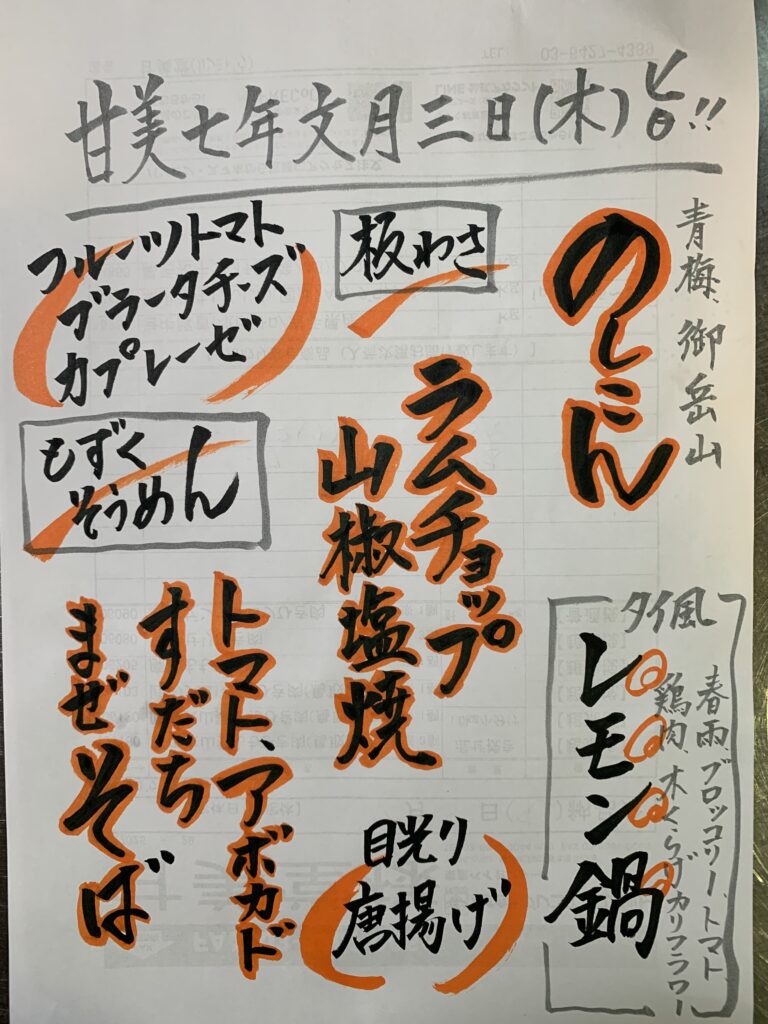 甘美七年文月三日(木)ヒロ!!
青梅、御岳山
のしこん
板わさ
フルーツトマト
ブラータチーズ
カプレーゼ
ラムチョップ
山椒塩焼
もずく
そうめん
タイ風
レモン鍋
春雨、ブロッコリー、トマト、
鶏肉、木くらげ、カリフラワー
トマト、アボカド
すだち
まぜそば
目光り
唐揚げ